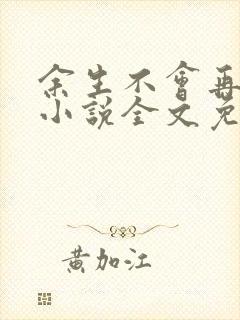 余生不會再
小說全文免
黃加江